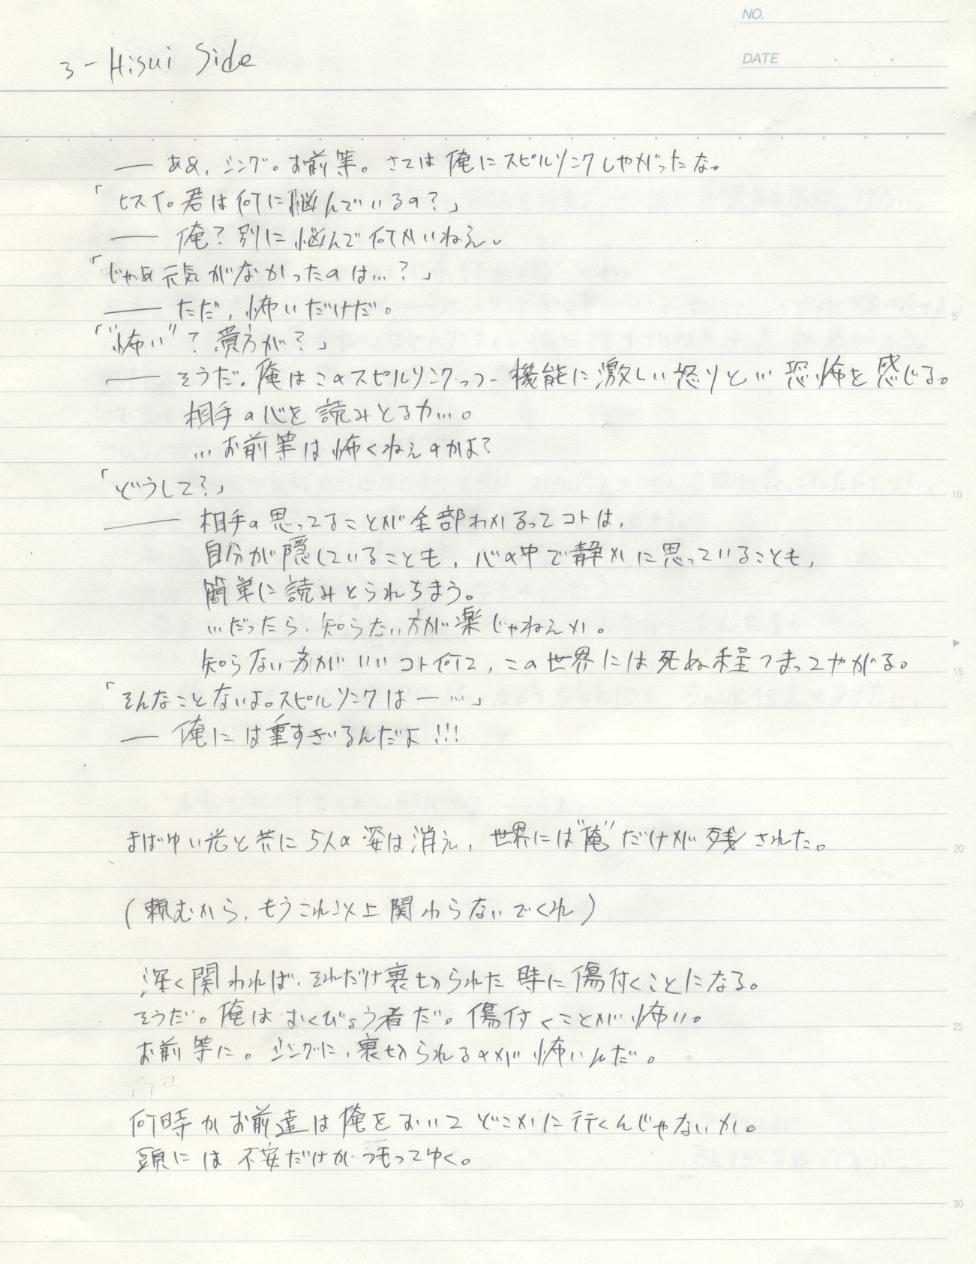 NO.
DATE
3- Hisui Side
── ああ、シング。お前等。さては俺にスピルリンクしやがったな。
「ヒスイ。君は何に悩んでいるの?」
── 俺?別に悩んで何かいねえ。
「じゃあ元気がなかったのは…?」
── ただ、怖いだけだ。
「"怖い"?貴方が?」
── そうだ。俺はこのスピルリンクっつー機能に激しい怒りと…恐怖を感じる。
相手の心を読みとる力…。
…お前等は怖くねえのかよ?
「どうして?」
── 相手の思ってることが全部わかるってコトは、
自分が隠していることも、心の中で静かに思っていることも、
簡単に読みとられちまう。
…だったら、知らない方が楽じゃねえか。
知らない方がいいコト何て、この世界には死ぬ程つまってやがる。
「そんなことないよ。スピルリンクは─…」
── 俺には重すぎるんだよ!!!
まばゆい光と共に5人の姿は消え、世界には"俺"だけが残された。
(頼むから、もうこれ以上関わらないでくれ)
深く関われば、それだけ裏切られた時に傷付くことになる。
そうだ。俺はおくびょう者だ。傷付くことが怖い。
お前等に。シングに、裏切られるのが怖いんだ。
何時かお前達は俺をおいてどこかに行くんじゃないか。
頭には不安だけがつもってゆく。
5
10
15
20
25
30